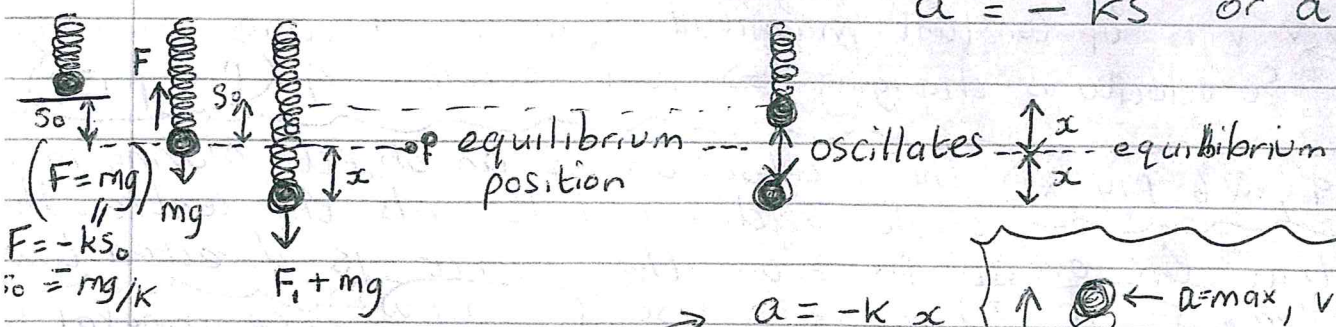 a = - ks or a
F
s₀
s₀
x
equilibrium
position
oscillates
x
x
equilibrium
(F=mg)
mg
F = -ks₀
s₀ = mg/k
F₁ + mg
→ a = -k x
← a=max, v